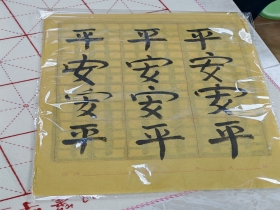 平安安平
平安安平
平安安平